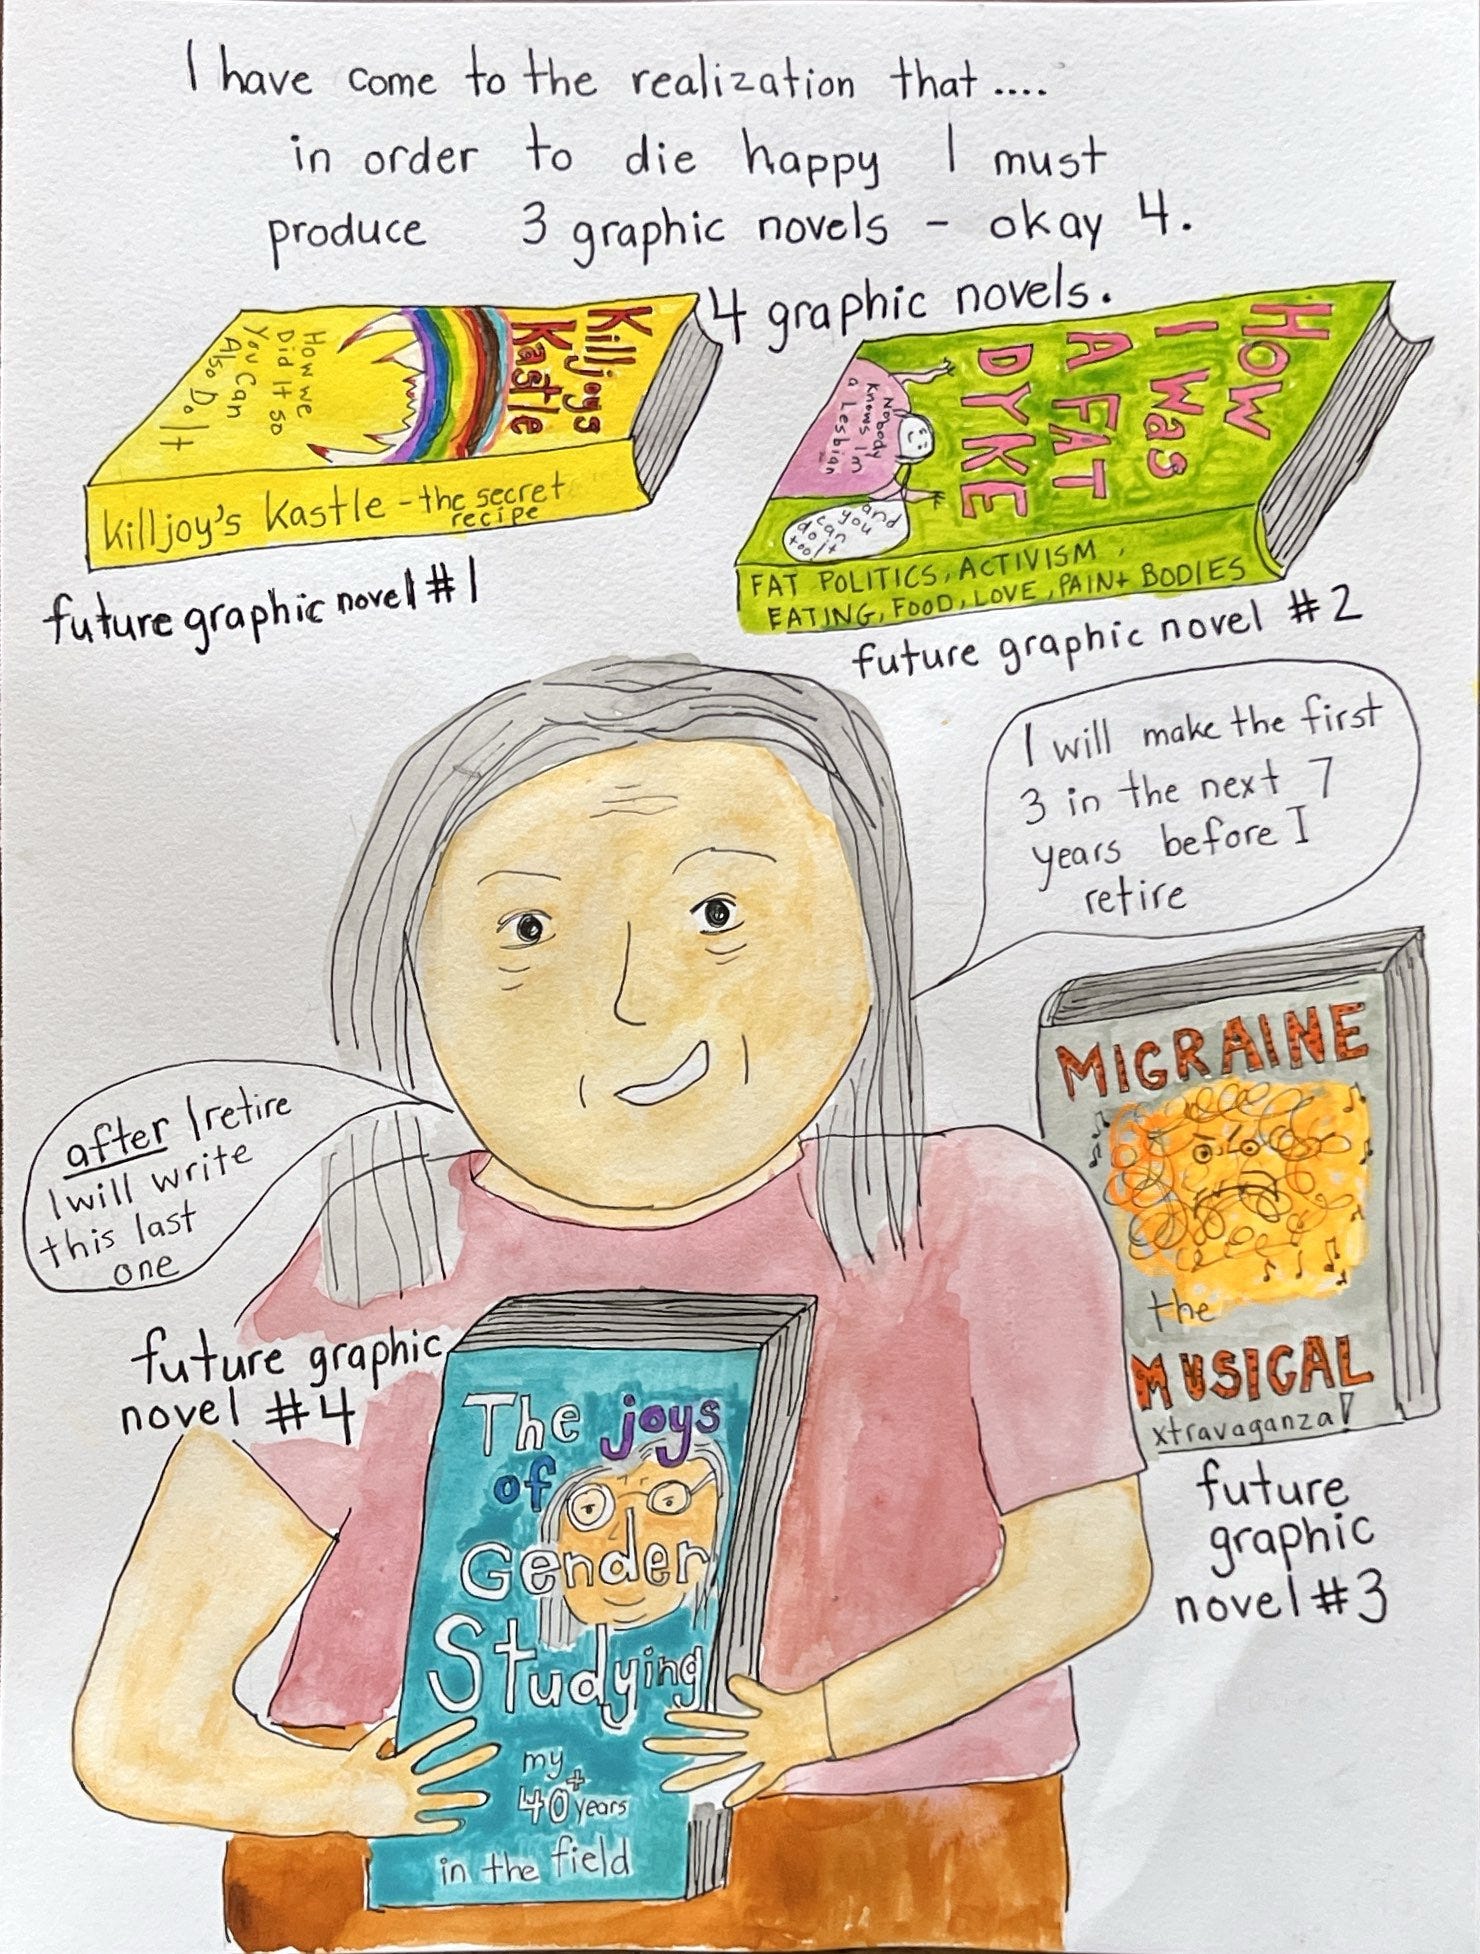 I have come to the realization that ....
in order to die happy I must
produce 3 graphic novels - okay 4.
4 graphic novels.
Killjoys
Kastle
How we
Did It so
You Can
Also Do It
Killjoy's Kastle - the secret
recipe
future graphic novel #1
How
I Was
A FAT
DYKE
Nobody
Knows I'm
a Lesbian
and
you
can
do it
too!
FAT POLITICS, ACTIVISM,
EATING, FOOD, LOVE, PAIN + BODIES
future graphic novel #2
I will make the first
3 in the next 7
years before I
retire
MIGRAINE
the
MUSICAL
xtravaganza!
future
graphic
novel #3
after I retire
I will write
this last
one
future graphic
novel #4
The joys
of
Gender
Studying
my
40+ years
in the field